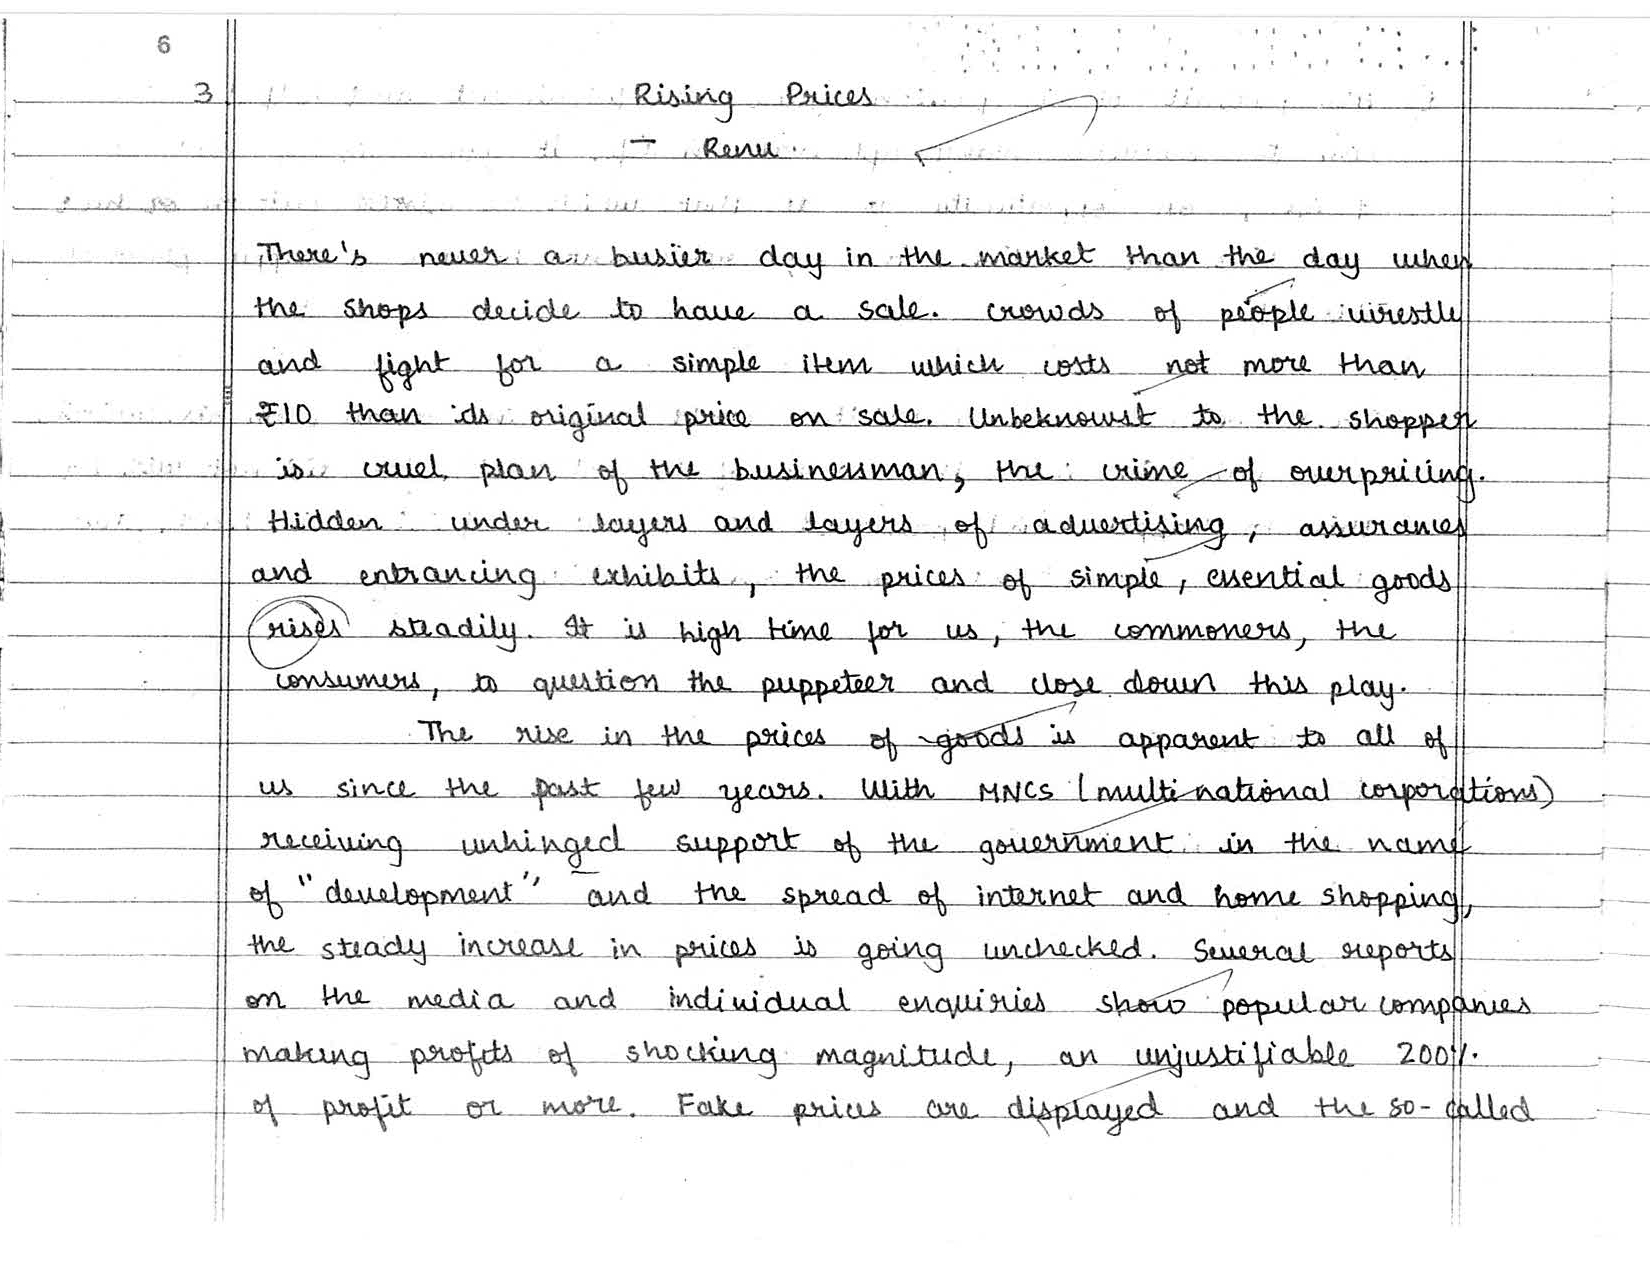 6
3 Rising Prices
- Renu
There's never a busier day in the market than the day when
the shops decide to have a sale. crowds of people wrestle
and fight for a simple item which costs not more than
₹10 than its original price on sale. Unbeknowst to the shopper
is cruel plan of the businessman, the crime of overpricing.
Hidden under layers and layers of advertising, assurances
and entrancing exhibits, the prices of simple, essential goods
rises steadily. It is high time for us, the commoners, the
consumers, to question the puppeteer and close down this play.
The rise in the prices of goods is apparent to all of
us since the past few years. With MNCS (multi national corporations)
receiving unhinged support of the government in the name
of "development" and the spread of internet and home shopping,
the steady increase in prices is going unchecked. Several reports
on the media and individual enquiries show popular companies
making profits of shocking magnitude, an unjustifiable 200%
of profit or more. Fake prices are displayed and the so-called